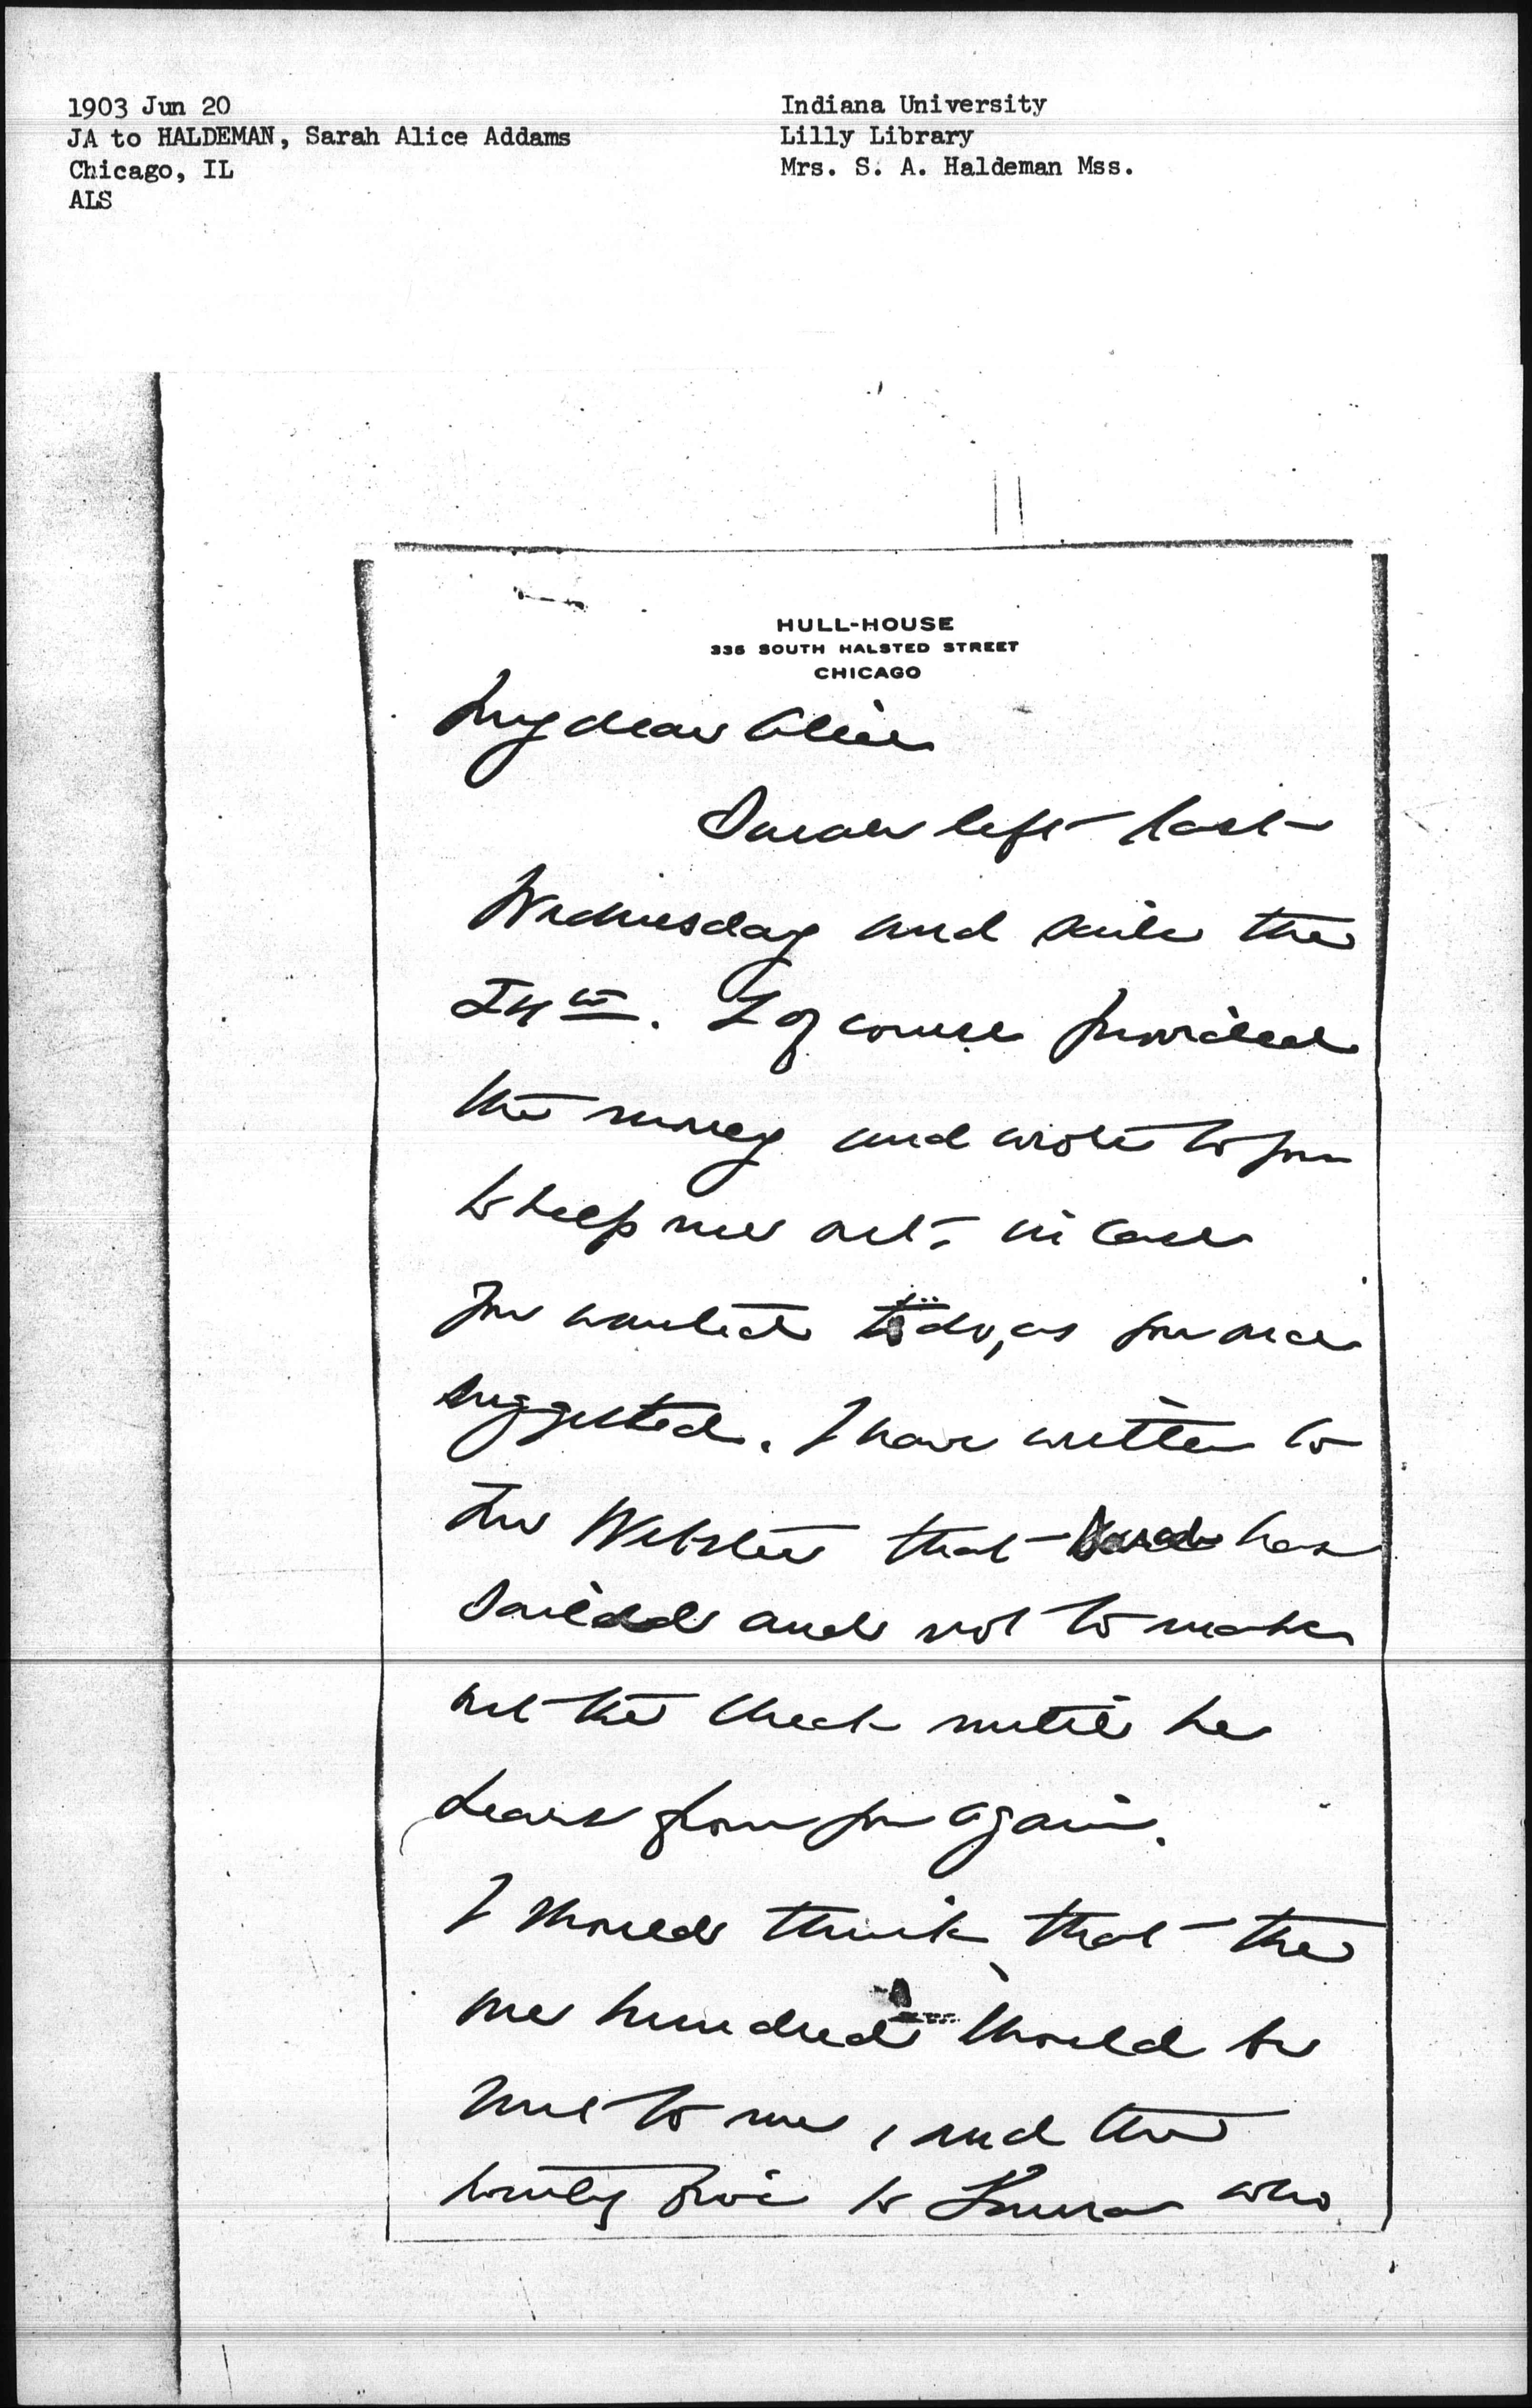 1903 Jun 20
JA to HALDEMAN, Sarah Alice Addams
Chicago, IL
ALS
Indiana University
Lilly Library
Mrs. S. A. Haldeman Mss.
HULL-HOUSE
335 SOUTH HALSTED STREET
CHICAGO
My dear Alice
left last
Wednesday and sails the
I of course provided
the money and wrote to you
to help me out - in case
you wanted to do, as you once
suggested. I have written to
Mr Webster that has
sailed and not to make
out the check until he
hears from you again.
I should think that the
one hundred should be
sent to me, and the
twenty five to Laura who